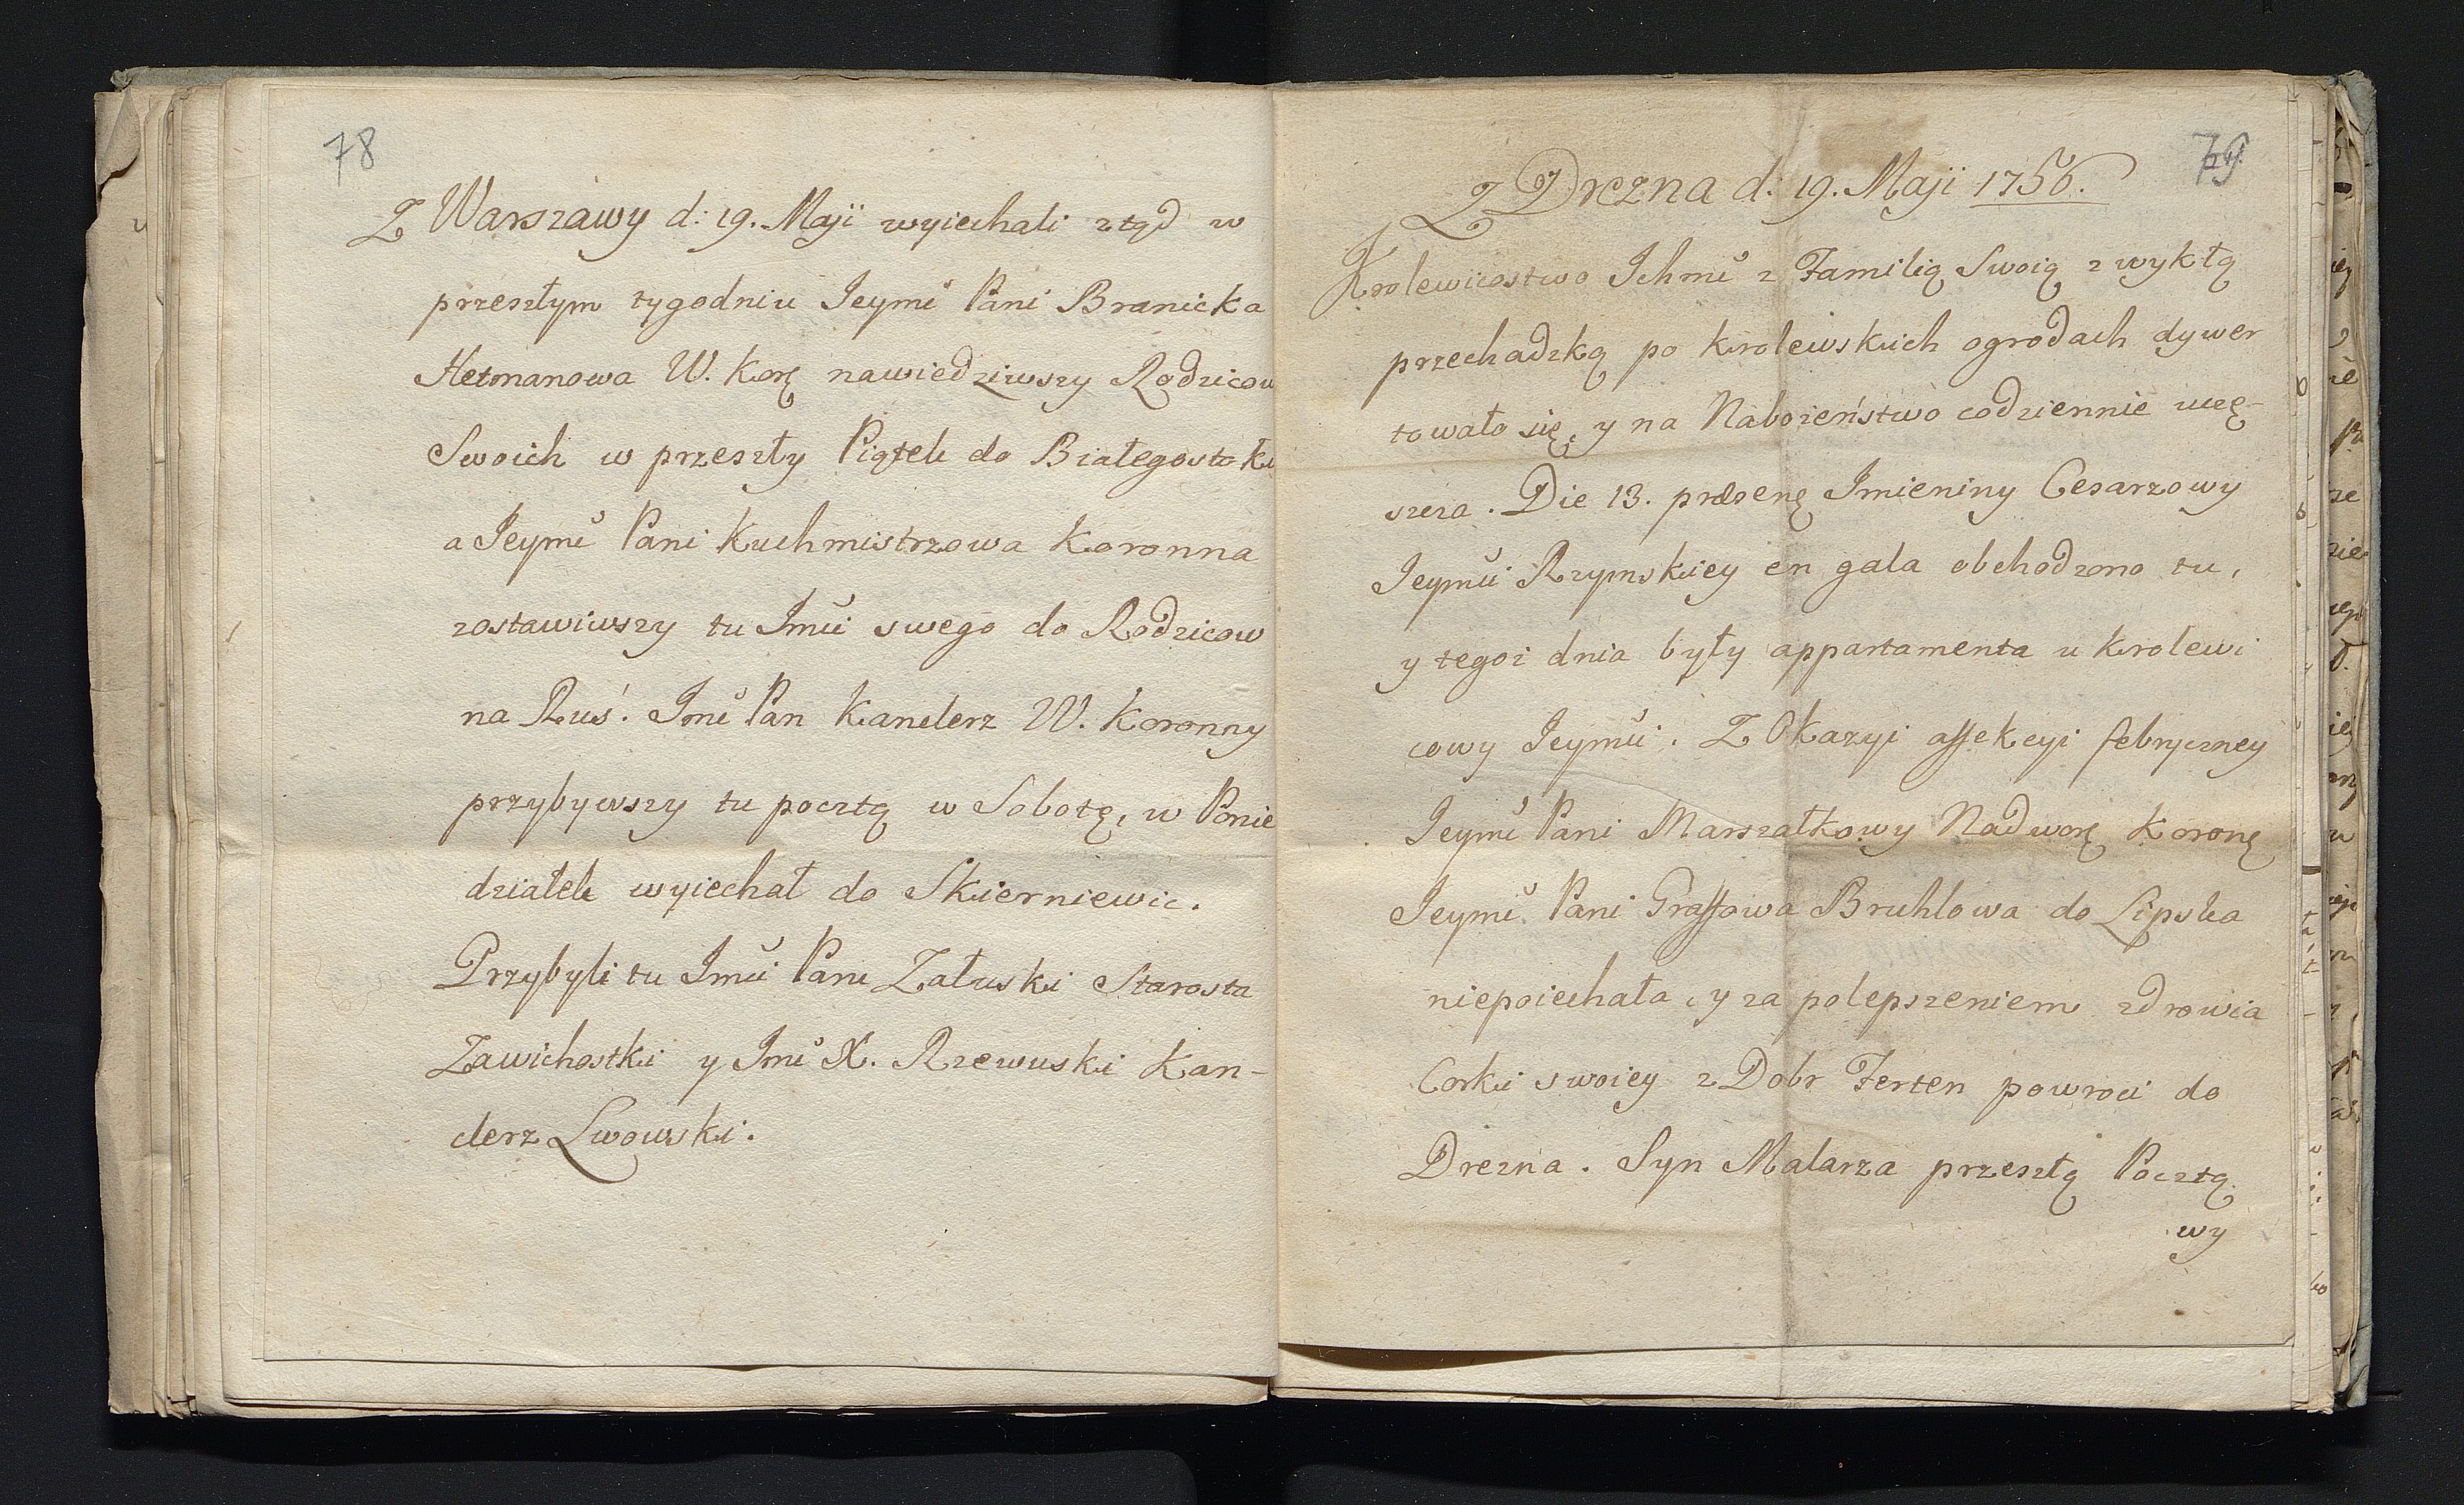 78
Z Warszawy d: 19. Maji wyiechali ztąd w
przeszłym tygodniu Jeymć Pani Branicka
Hetmanowa W. Korę nawiedziwszy Rodzicow
Swoich w przeszły Piątek do Białegostoku
a Jeymć Pani Kuchmistrzowa Koronna
zostawiwszy tu Jmći swego do Rodzicow
na Ruś. Jmć Pan Kanclerz W. Koronny
przybywszy tu pocztą w Sobotę, w Ponie
działek wyiechał do Skierniewic.
Przybyli tu Jmći Pan Załuski Starosta
Zawichostki y Jmć X. Rzewuski Kan-
clerz Lwowski.
79
Z Drezna d: 19. Maji 1756.
Krolewicostwo Ichmć z Familią Swoią zwykłą
przechadzką po krolewskich ogrodach dywer
towało się, y na Nabożeństwo codziennie uczę-
szcza. Die 13. præsenę Imieniny Cesarzowy
Jeymći Rzymskiey en gala obchodzono tu,
y tegoż dnia były appartamenta u Krolewi
cowy Jeymći. Z Okazyi affekcyi febryczney
Jeymć Pani Marszałkowy Nadworę Koronę
Jeymć Pani Graffowa Bruhlowa do Lipska
niepoiechała, y za polepszeniem zdrowia
Corki swoiey z Dobr Ferten powroci do
Drezna. Syn Malarza przeszłą Pocztą
wy